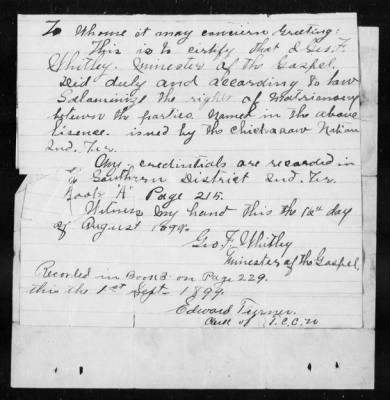 To Whome it may conciern Greeting:
This is to certify that I Geo. F.
Whitley. Minester of the Gospel.
Did duly and according to law
Solaminize the rights of Matrimony
between the parties Named in the above
Lisence. issued by the Chickasaw Nation
Ind. Ter.
My credentials are recorded in
Southern District Ind. Ter.
Book "A" Page 215.
Witness my hand this the day
of August 1899.
Geo. F. Whitley
Minester of the Gospel.
Recorded in Book on Page 229.
this the 1st Sept. 1899.
Edward Turner.
Clerk of